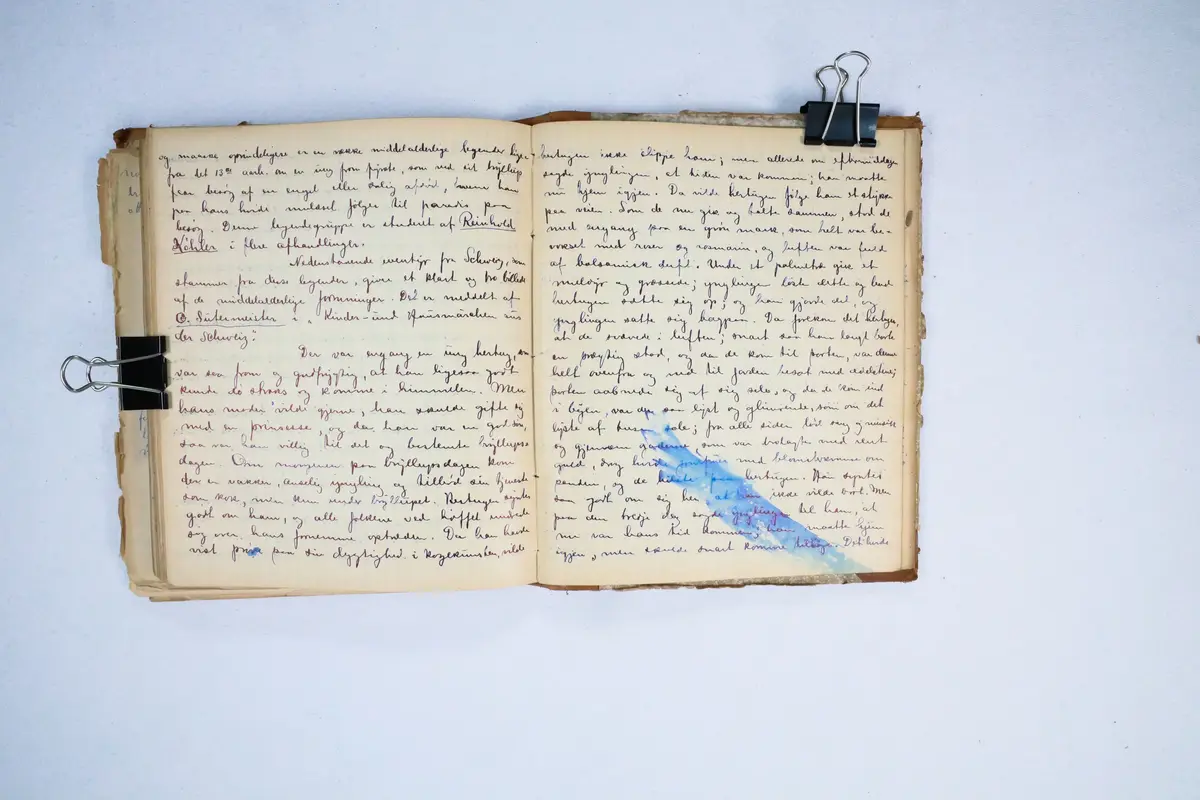 og maaske oprindeligere er en række middelalderlige legender lige
fra det 13de aarh. om en ung from fyrste, som ved sit bryllup
faar besøg af en engel eller salig afdød, hvem han
paa hans hvide muldæsel følger til paradis paa
besøg. Denne legendegruppe er studeret af Reinhold
Köhler i flere afhandlinger.
Nedenstaaende eventyr fra Schweiz, som
stammer fra disse legender, giver et klart og tro billede
af de middelalderlige formninger. Det er meddelt af
O. Sutermeister i „Kinder- und Hausmärchen aus
der Schweiz".
Der var engang en ung hertug, som
var saa from og gudfrygtig, at han ligesaa godt
kunde dø straks og komme i himmelen. Men
hans moder vilde gjerne, han skulde gifte sig
med en prinsesse, og da han var en god søn,
saa var han villig til det og bestemte bryllups-
dagen. Om morgenen paa bryllupsdagen kom
der en vakker, anselig yngling og tilbød sin tjeneste
som kok, men kun under bryllupet. Hertugen syntes
godt om ham, og alle folkene ved hoffet undrede
sig over hans fornemme optræden. Da han havde
vist prøve paa sin dygtighed i kogekunsten, vilde
hertugen ikke slippe ham; men allerede om eftermiddagen
sagde ynglingen, at tiden var kommen; han maatte
nu hjem igjen. Da vilde hertugen følge ham et stykke
paa veien. Som de nu gik og talte sammen, stod de
med engang paa en grøn mark, som helt var be-
vokset med roser og rosmarin, og luften var fuld
af balsamisk duft. Under et palmetræ gik et
muldyr og græssede; ynglingen løste dette og bad
hertugen sætte sig op; og han gjorde det, og
ynglingen satte sig bagpaa. Da forekom det hertugen,
at de svævede i luften; snart saa han langt borte
en prægtig stad, og da de kom til porten, var denne
helt ovenfra og ned til jorden besat med ædelstene;
porten aabnede sig af sig selv, og da de kom ind
i byen, var der saa lyst og glimrende, som om det
lyste af tusen sole; fra alle sider lød sang og musikk
og gjennem gaderne, som var belagte med rent
guld, drog hvide jomfruer med blomsterkranse om
panden, og de hilste paa hertugen. Han syntes
saa godt om sig her, at han ikke vilde bort. Men
paa den tredje dag sagde ynglingen til ham, at
nu var hans tid kommen; han maatte hjem
igjen, men skulde snart komme tilbage. Det havde